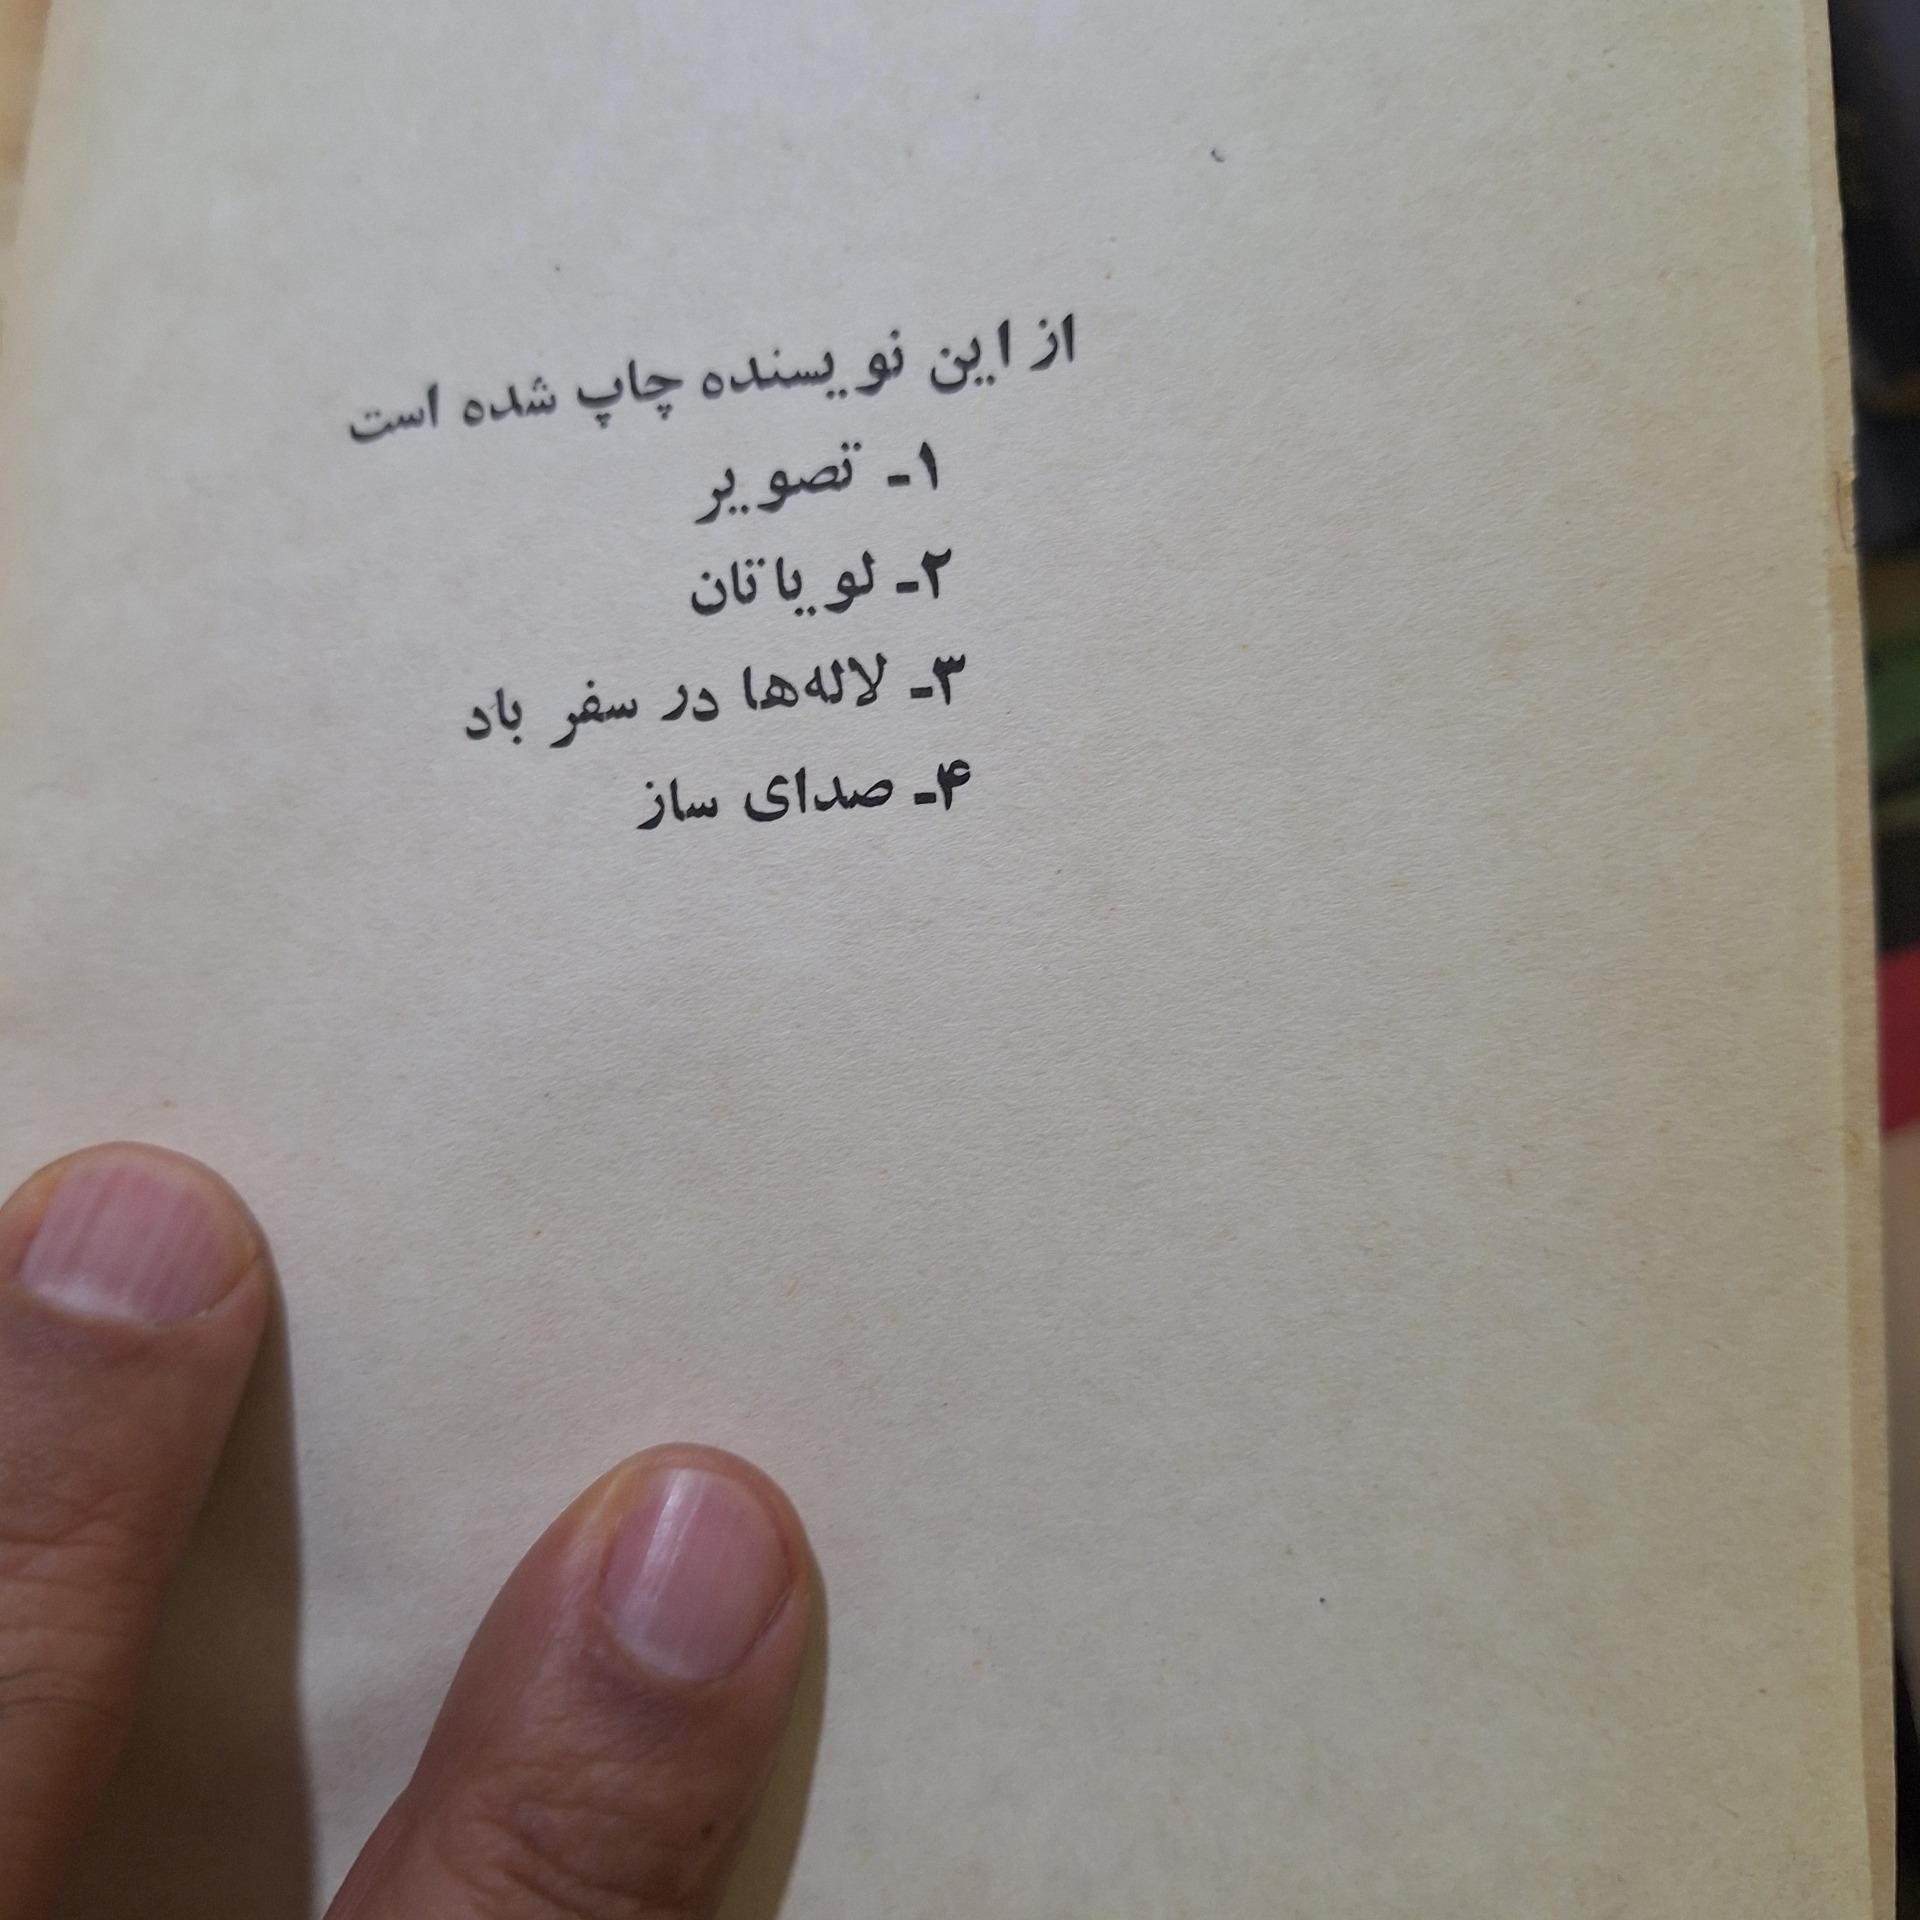 از این نویسنده چاپ شده است
۱ـ تصویر
۲ـ لویاتان
۳ـ لاله‌ها در سفر باد
۴ـ صدای ساز